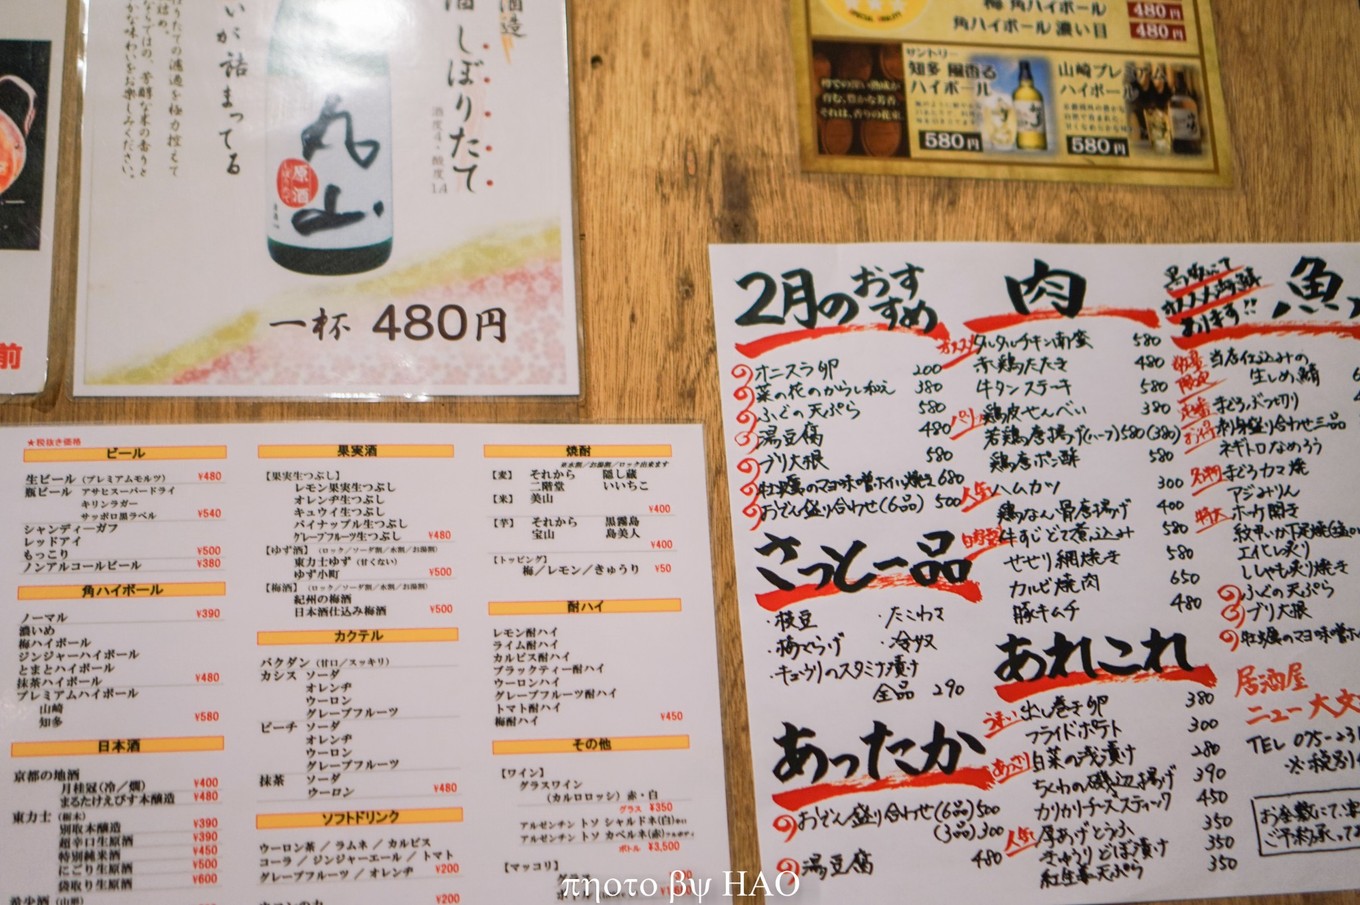 酒造
しぼりたて
酒度4・酸度1.4
いが詰まってる
丸山
原酒
一杯 480円
前
梅 角ハイボール 480円
角ハイボール 濃い目 480円
SPECIAL QUALITY
サントリー
知多 風香る
ハイボール
580円
山崎プレミアム
ハイボール
580円
★税抜き価格
ビール
生ビール（プレミアムモルツ） ¥480
瓶ビール アサヒスーパードライ
キリンラガー
サッポロ黒ラベル ¥540
シャンディーガフ
レッドアイ
もっこり ¥500
ノンアルコールビール ¥380
角ハイボール
ノーマル ¥390
濃いめ
梅ハイボール
ジンジャーハイボール
とまとハイボール
抹茶ハイボール ¥480
プレミアムハイボール
山崎
知多 ¥580
日本酒
京都の地酒
月桂冠（冷／燗） ¥400
まるたけえびす本醸造 ¥480
東力士（栃木）
別取本醸造 ¥390
超辛口生原酒 ¥390
特別純米酒 ¥450
にごり生原酒 ¥500
袋取り生原酒 ¥600
果実酒
【果実生つぶし】
レモン果実生つぶし
オレンヂ生つぶし
キュウイ生つぶし
パイナップル生つぶし
グレープフルーツ生つぶし ¥480
【ゆず酒】（ロック／ソーダ割／水割／お湯割）
東力士ゆず（甘くない）
ゆず小町 ¥500
【梅酒】（ロック／ソーダ割／水割／お湯割）
紀州の梅酒
日本酒仕込み梅酒 ¥500
カクテル
バクダン（甘口／スッキリ）
カシス ソーダ
オレンヂ
ウーロン
グレープフルーツ
ピーチ ソーダ
オレンヂ
ウーロン
グレープフルーツ
抹茶 ソーダ
ウーロン ¥480
ソフトドリンク
ウーロン茶 ／ ラムネ ／ カルピス
コーラ ／ ジンジャーエール ／ トマト
グレープフルーツ ／ オレンヂ ¥200
¥200
焼酎
※水割／お湯割／ロック出来ます
【麦】 それから 隠し蔵
二階堂 いいちこ
【米】 美山
¥400
【芋】 それから 黒霧島
宝山 島美人
¥400
【トッピング】
梅／レモン／きゅうり ¥50
酎ハイ
レモン酎ハイ
ライム酎ハイ
カルピス酎ハイ
ブラックティー酎ハイ
ウーロンハイ
グレープフルーツ酎ハイ
トマト酎ハイ
梅酎ハイ ¥450
その他
【ワイン】
グラスワイン
（カルロロッシ）赤・白
グラス ¥350
アルゼンチン トソ シャルドネ(白)
アルゼンチン トソ カベルネ(赤)
ボトル ¥3,500
【マッコリ】
2月のおすすめ
オニスラ卵 200
菜の花のからし和え 380
ふぐの天ぷら 580
湯豆腐 480
ブリ大根 580
牡蠣のマヨ味噌ホイル焼き 680
おでん盛り合わせ(6品) 500
さっと一品
・枝豆 ・たこわさ
・梅くらげ ・冷奴
・キュウリのスタミナ漬け
全品 290
あったか
おでん盛り合わせ(6品) 500
(3品) 300
湯豆腐 480
肉
オススメ タルタルチキン南蛮 580
赤鶏たたき 480
牛タンステーキ 580
パリパリ 鶏皮せんべい 380
若鶏唐揚げ(ハーフ) 580(380)
鶏唐ポン酢 580
人気 ハムカツ 300
鶏なんこつ唐揚げ 400
牛すじどて煮込み 580
せせり網焼き 580
カルビ焼肉 650
豚キムチ 480
あれこれ
うまい 出し巻き卵 380
フライドポテト 300
あっさり 白菜の浅漬け 280
ちくわの磯辺揚げ 390
カリカリチーズスティック 450
人気 厚あげとうふ 350
きゅうりどぼ漬け 350
紅生姜天ぷら 350
オススメ海鮮
あります!!
魚
数量限定 当店仕込みの
生しめ鯖
定番 まぐろぶつ切り
お得 刺身盛り合わせ三品
ネギトロなめろう
名物 まぐろカマ焼
アジみりん
特大 ホッケ開き
エイヒレ炙り
ししゃも炙り焼き
ふぐの天ぷら
ブリ大根
牡蠣のマヨ味噌ホ
居酒屋
ニュー大文
TEL 075-231
※税別
お座敷にて、
ご予約承って
photo by HAO